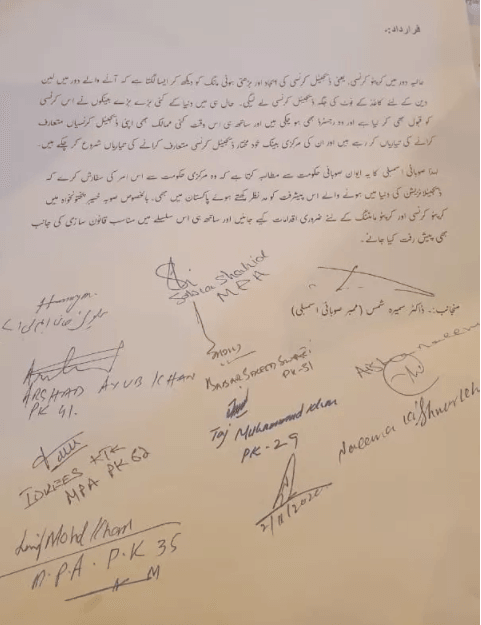 قرارداد:
حالیہ دور میں کرپٹو کرنسی، یعنی ڈیجیٹل کرنسی کی ایجاد اور بڑھتی ہوئی مانگ کو دیکھ کر ایسا لگتا ہے کہ آنے والے دور میں لین
دین کے لئے کاغذ کے نوٹ کی جگہ ڈیجیٹل کرنسی لے لیگی۔ حال ہی میں دنیا کے کئی بڑے بڑے بینکوں نے اس کرنسی
کو قبول بھی کر لیا ہے اور وہ رجسٹرڈ بھی ہو چکی ہیں اور ساتھ ہی اس وقت کئی ممالک بھی اپنی ڈیجیٹل کرنسیاں متعارف
کرانے کی تیاریاں کر رہے ہیں اور ان کی مرکزی بینک خود مختار ڈیجیٹل کرنسی متعارف کرانے کی تیاریاں شروع کر چکے ہیں۔
لہذا صوبائی اسمبلی کا یہ ایوان صوبائی حکومت سے مطالبہ کرتا ہے کہ وہ مرکزی حکومت سے اس امر کی سفارش کرے کہ
ڈیجیٹلائزیشن کی دنیا میں ہونے والے اس پیشرفت کو مد نظر رکھتے ہوئے پاکستان میں بھی، بالخصوص صوبہ خیبر پختونخواہ میں
کرپٹو کرنسی اور کرپٹو مائننگ کے لئے ضروری اقدامات کیے جائیں اور ساتھ ہی اس سلسلے میں مناسب قانون سازی کی جانب
بھی پیش رفت کیا جائے۔
Sobia Shahid
MPA
منجانب:۔ ڈاکٹر سمیرہ شمس (ممبر صوبائی اسمبلی)
Humaira
ARSHAD AYUB KHAN
PK 41.
BABAR SALEEM SWATI
PK-31
Taj Muhammad Khan
PK-29
Naeema Kishwar Kh
IDREES KTK
MPA PK 62
2/11/2020
Mohd Khan
M.P.A. P.K 35